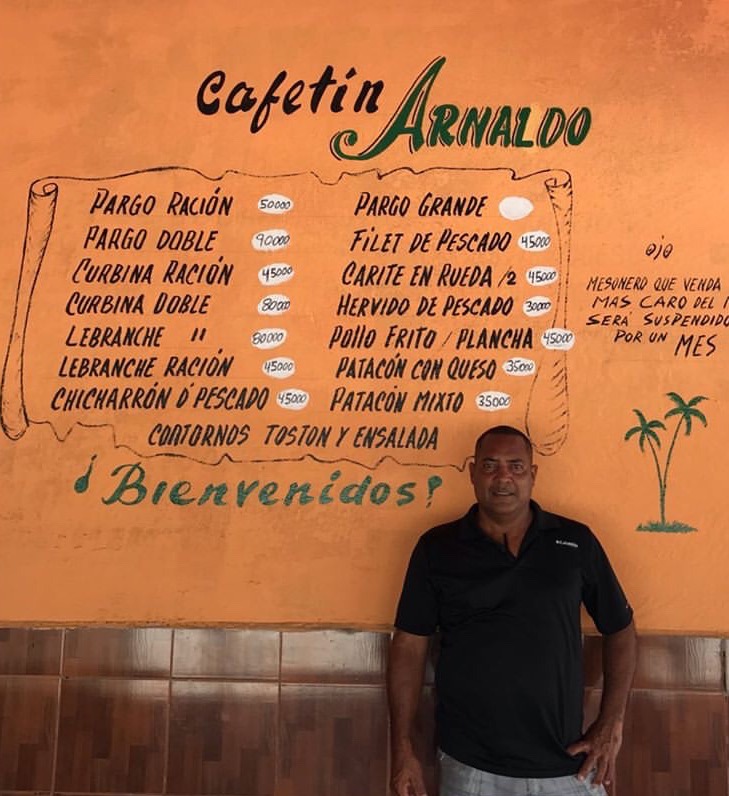 Cafetín ARNALDO
PARGO RACIÓN 50000
PARGO DOBLE 90000
CURBINA RACIÓN 45000
CURBINA DOBLE 80000
LEBRANCHE " 80000
LEBRANCHE RACIÓN 45000
CHICHARRÓN D'PESCADO 45000
PARGO GRANDE
FILET DE PESCADO 45000
CARITE EN RUEDA /2 45000
HERVIDO DE PESCADO 30000
POLLO FRITO / PLANCHA 45000
PATACÓN CON QUESO 35000
PATACÓN MIXTO 35000
CONTORNOS TOSTON Y ENSALADA
¡Bienvenidos!
OJO
MESONERO QUE VENDA
MAS CARO DEL
SERÁ SUSPENDIDO
POR UN MES
Columbia